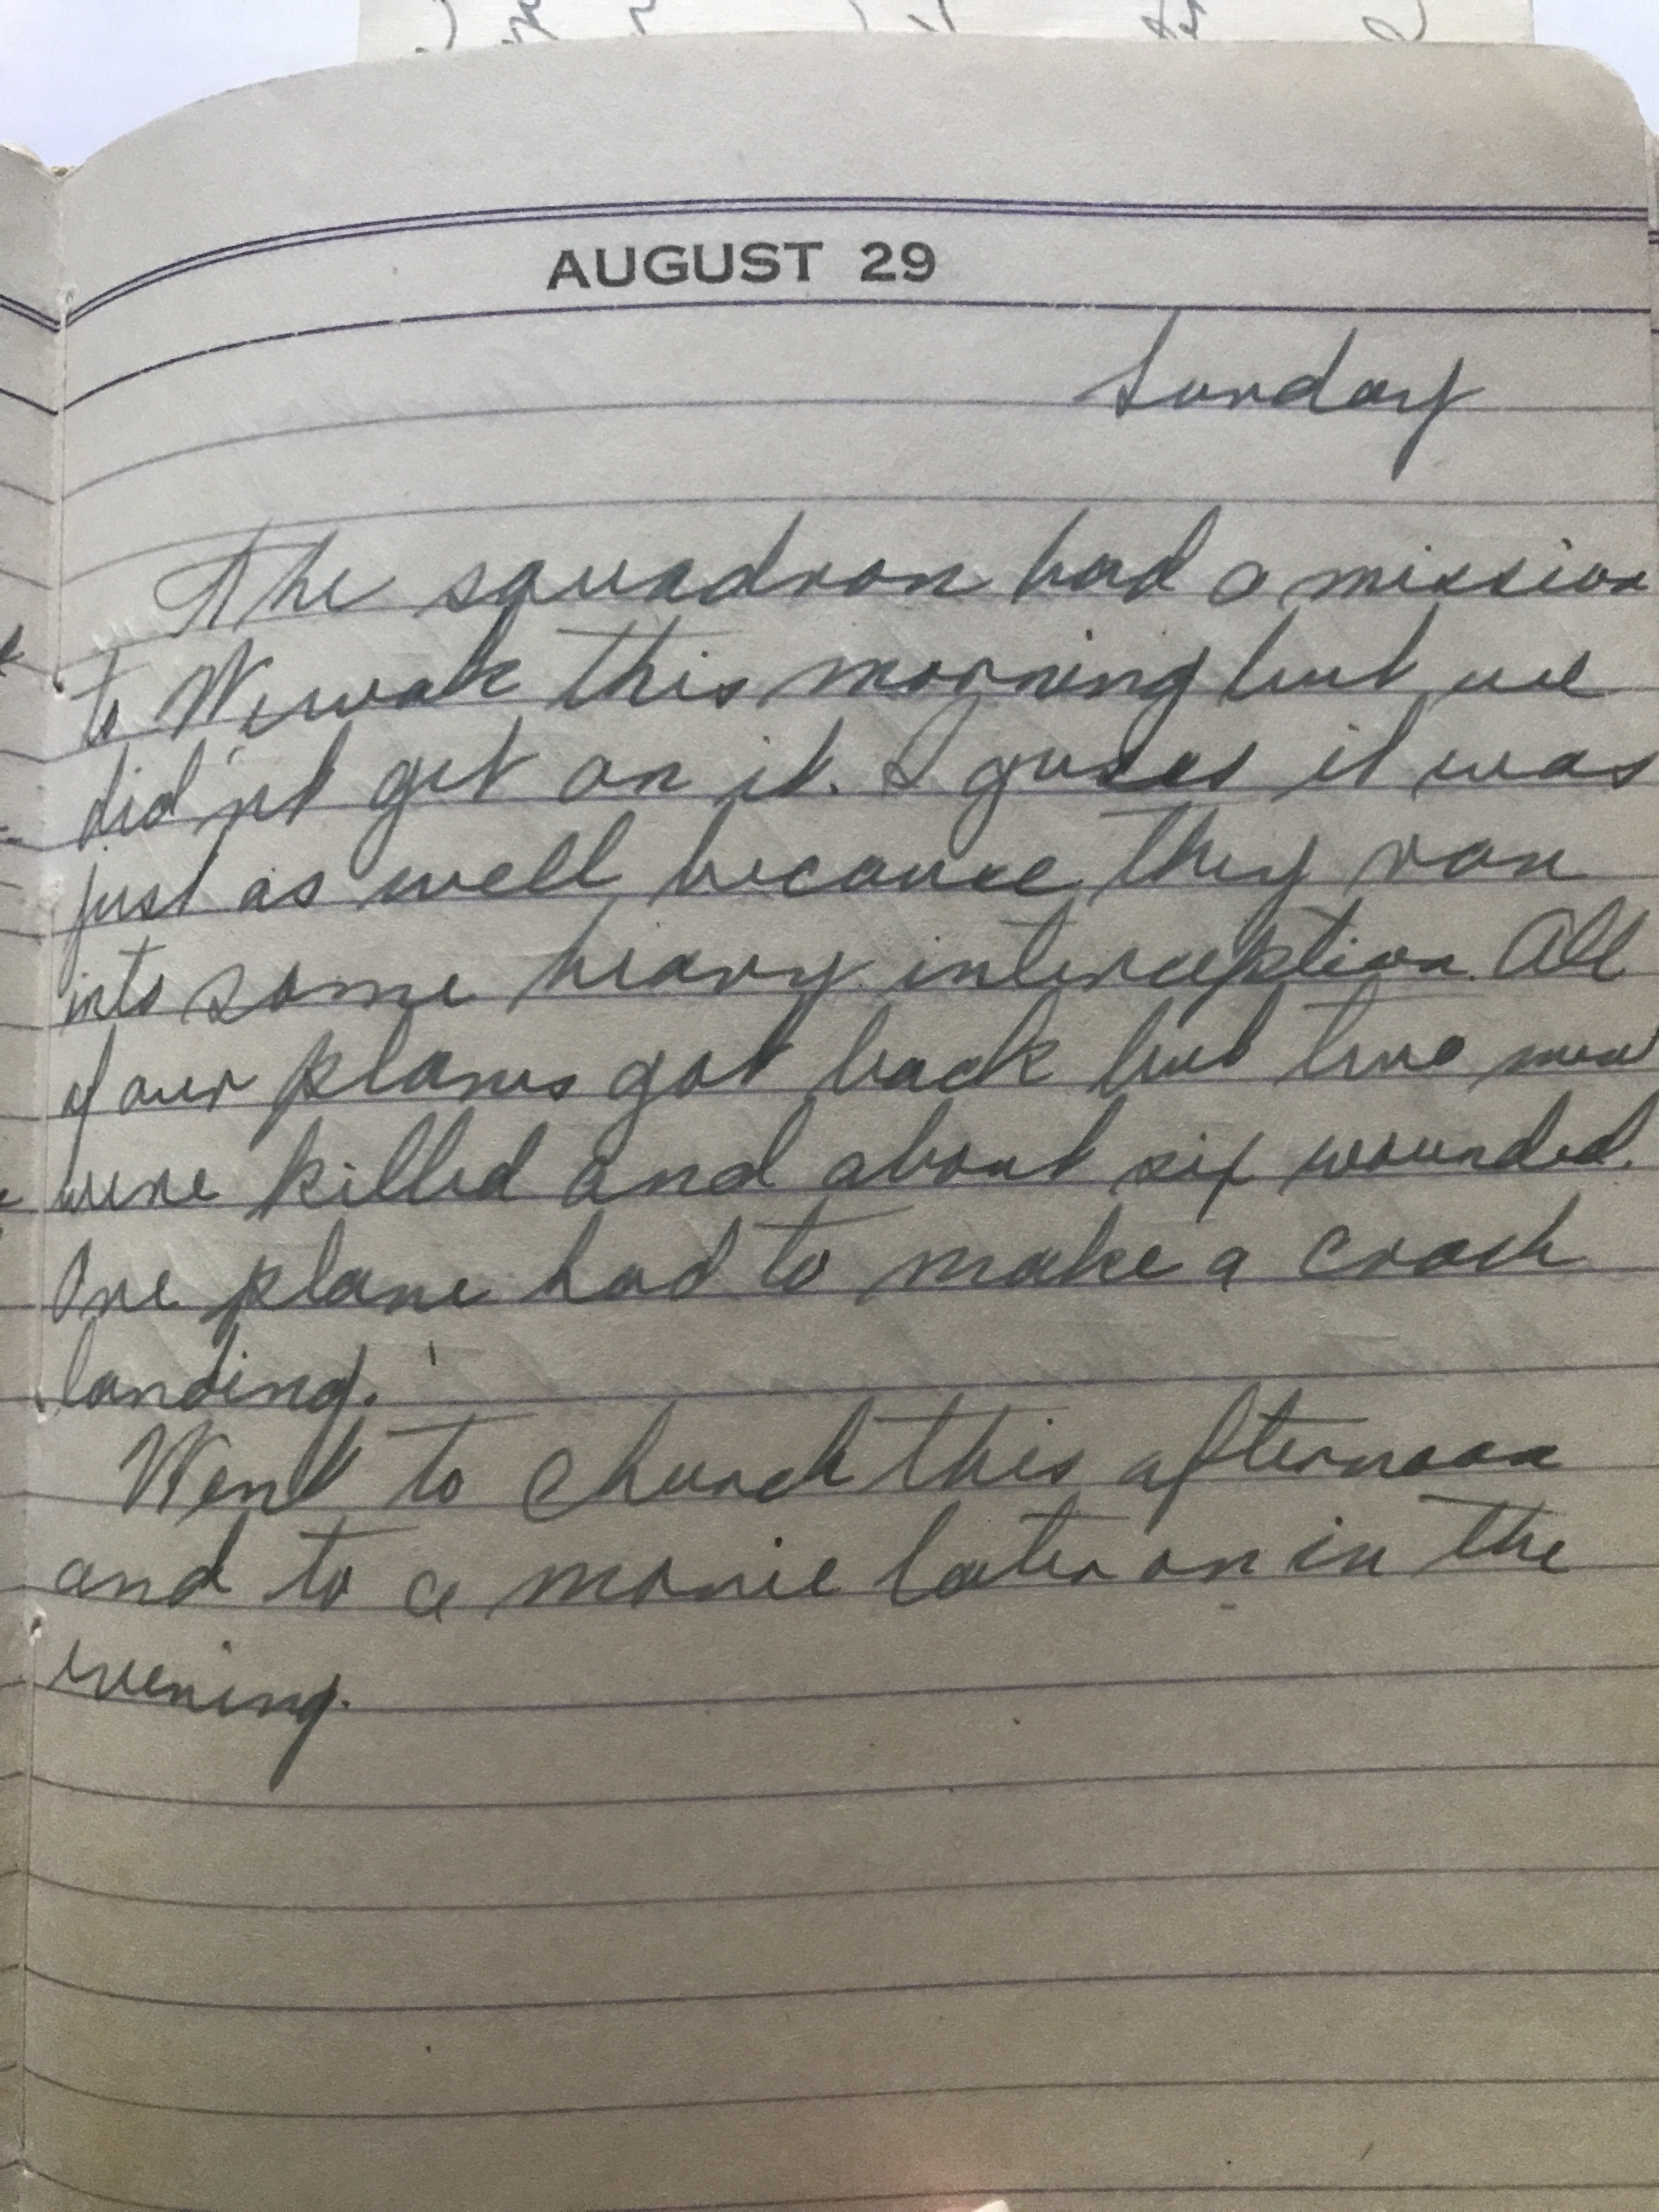 AUGUST 29
Sunday
The squadron had a mission
to Wewak this morning but we
did'nt get on it. I guess it was
just as well because they ran
into some heavy interception. All
of our planes got back but two men
were killed and about six wounded.
One plane had to make a crash
landing.
Went to church this afternoon
and to a movie later on in the
evening.